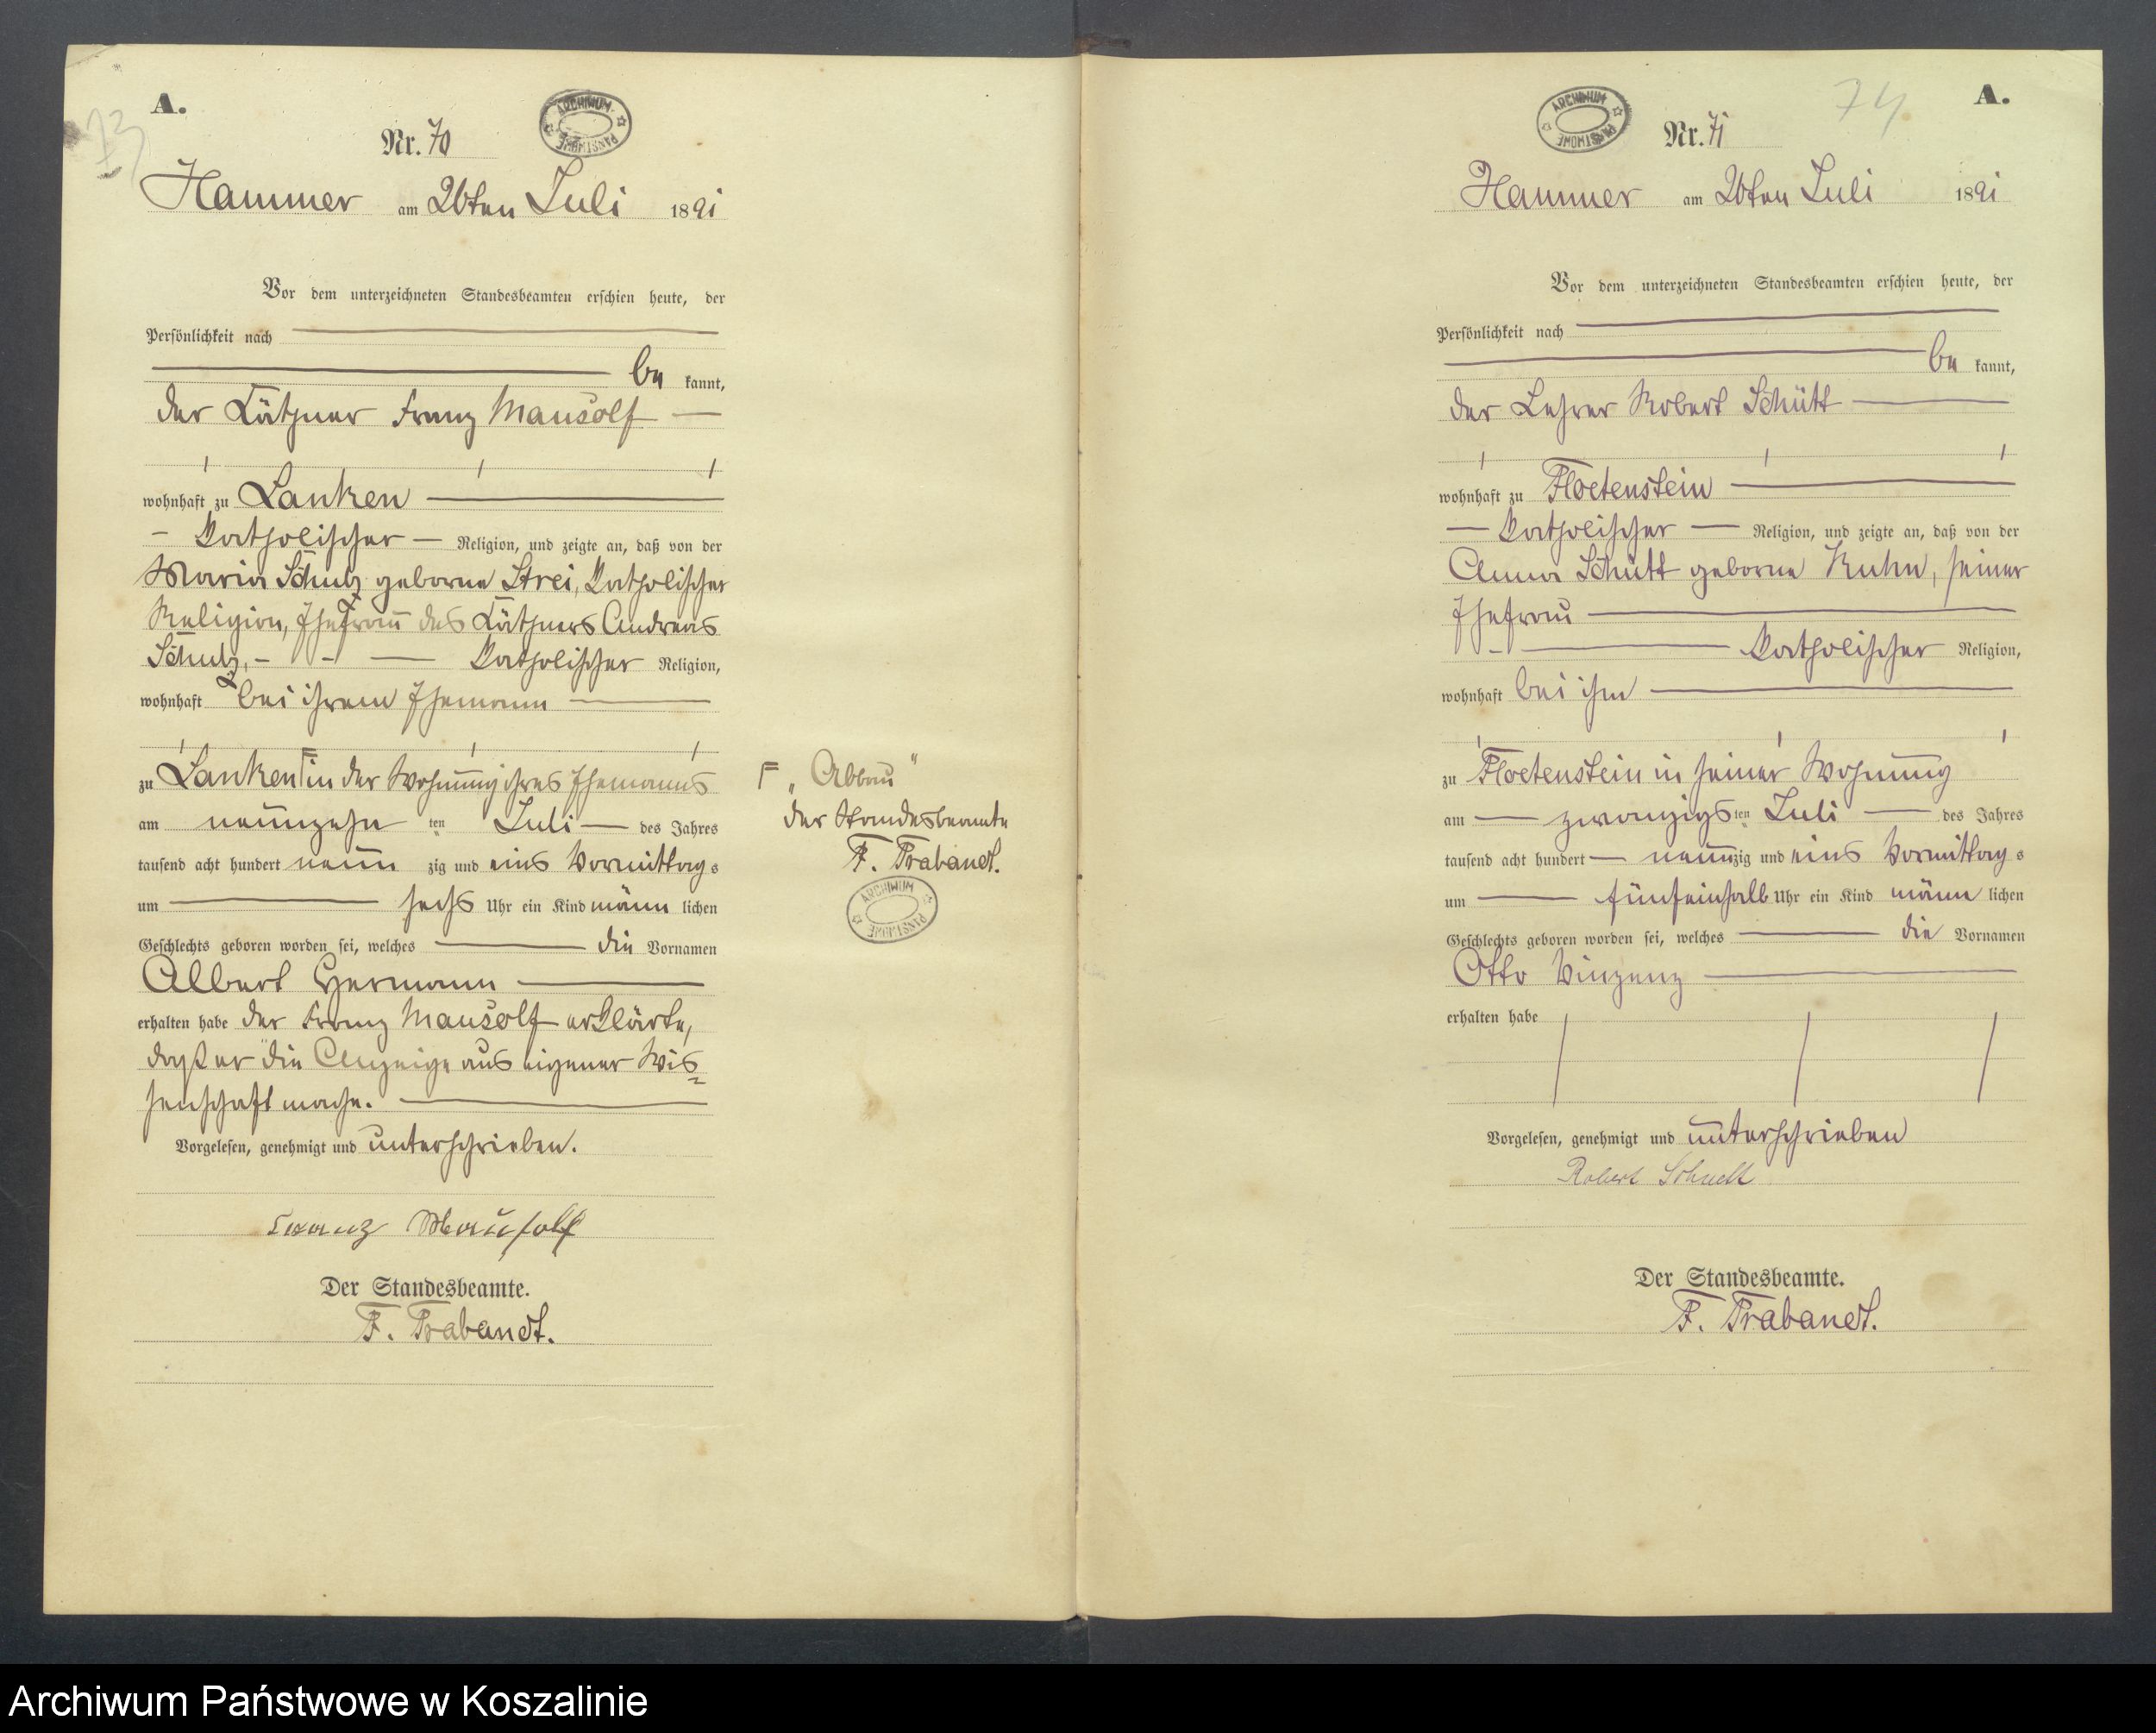 A.
73
ARCHIWUM PAŃSTWOWE
Nr. 70
Hammer am 26ten Juli 1891
Vor dem unterzeichneten Standesbeamten erschien heute, der
Persönlichkeit nach
be kannt,
der Käthner Franz Mausolf
wohnhaft zu Lanken
katholischer Religion, und zeigte an, daß von der
Maria Schulz geborne Strei, katholischer
Religion, Ehefrau des Käthners Andreas
Schulz, katholischer Religion,
wohnhaft bei ihrem Ehemann
zu Lanken in der Wohnung ihres Ehemanns
am neunzehn ten Juli des Jahres
tausend acht hundert neun zig und eins Vormittag s
um sechs Uhr ein Kind männ lichen
Geschlechts geboren worden sei, welches die Vornamen
Albert Hermann
erhalten habe der Franz Mausolf erklärte,
daß er die Anzeige aus eigener Wis=
senschaft mache.
Vorgelesen, genehmigt und unterschrieben.
Franz Mausolf
Der Standesbeamte.
F. Trabandt.
„Abbau"
der Standesbeamte
F. Trabandt.
ARCHIWUM PAŃSTWOWE
74
A.
ARCHIWUM PAŃSTWOWE
Nr. 71
Hammer am 26ten Juli 1891
Vor dem unterzeichneten Standesbeamten erschien heute, der
Persönlichkeit nach
be kannt,
der Lehrer Robert Schütt
wohnhaft zu Floetenstein
katholischer Religion, und zeigte an, daß von der
Anna Schütt geborne Kuhn, seiner
Ehefrau
katholischer Religion,
wohnhaft bei ihm
zu Floetenstein in seiner Wohnung
am zwanzigs ten Juli des Jahres
tausend acht hundert neun zig und eins Vormittag s
um fünfeinhalb Uhr ein Kind männ lichen
Geschlechts geboren worden sei, welches die Vornamen
Otto Vinzenz
erhalten habe
Vorgelesen, genehmigt und unterschrieben
Robert Schuett
Der Standesbeamte.
F. Trabandt.
Archiwum Państwowe w Koszalinie